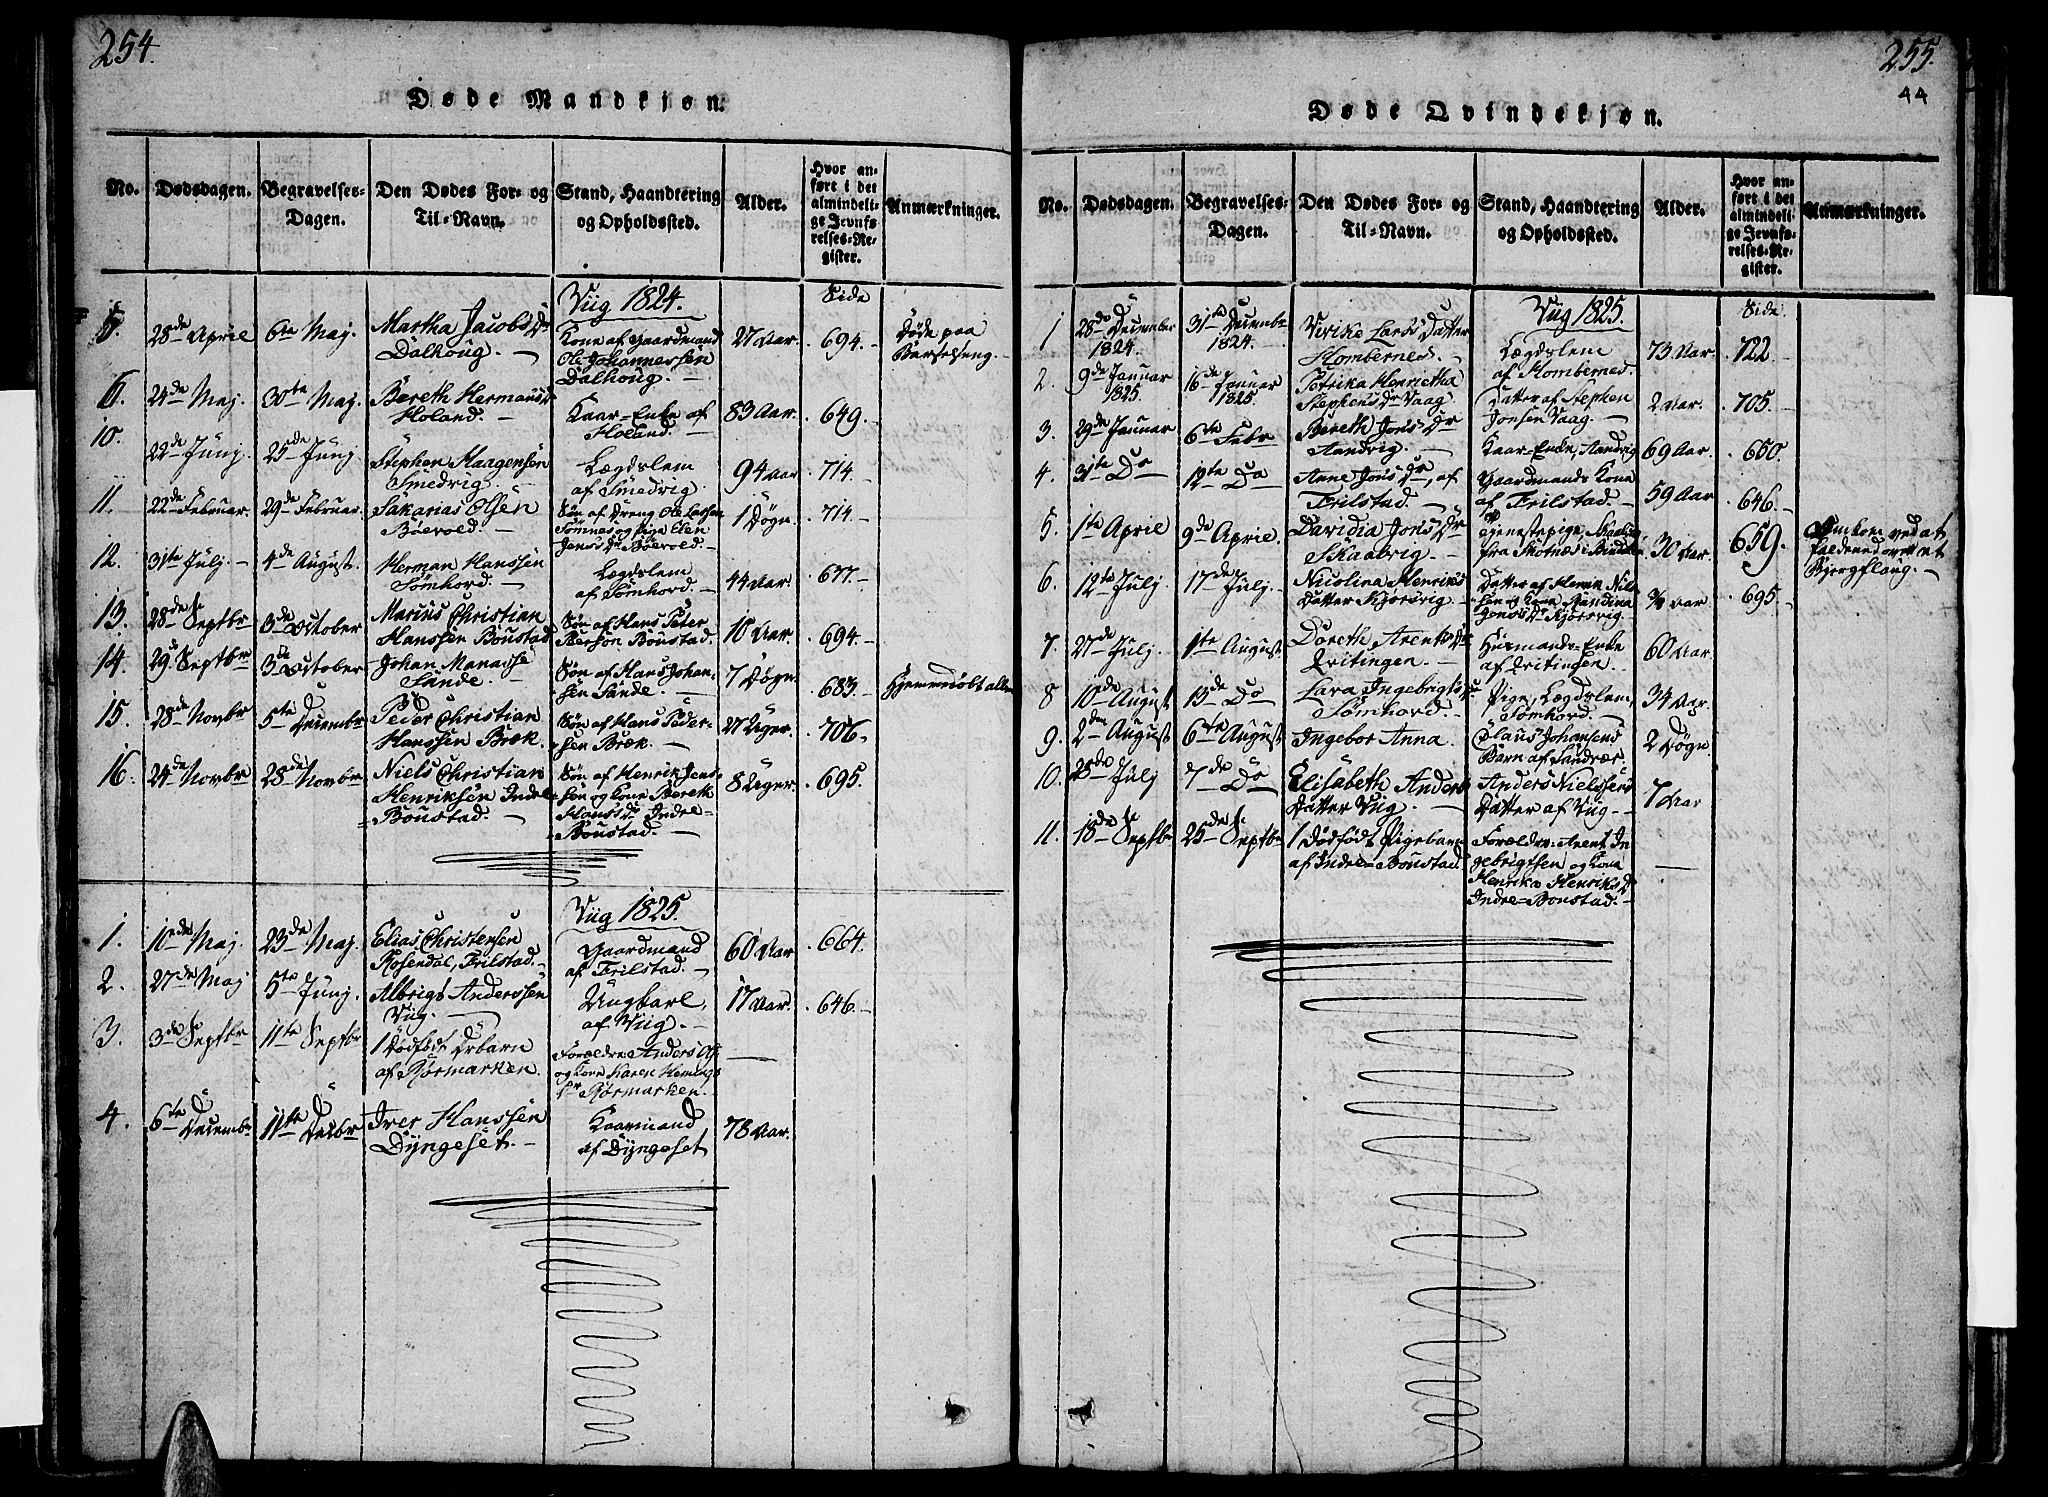 254.
Døde Mandkjøn.
No. Dødsdagen. Begravelses-Dagen. Den Dødes For- og Til-Navn. Stand, Haandtering og Opholdssted. Alder. Hvor anført i det almindelige Jevnførelses-Register. Anmærkninger.
Viig 1824. Side
5. 28de April 6te Maj. Martha Jacobs Dr
Dalhoug. Kone af Gaardmand
Ole Johannessen
Dalhoug. 27 Aar. 694. Døde paa
Barselseng.
6. 24de Maj. 30te Maj. Bereth Hermans Dr
Holand. Kaar-Enke af
Holand. 83 Aar. 649.
10. 22de Junj. 25de Junj Stephen Haagensen
Smedvig. Lægdslem
af Smedvig. 94 Aar 714.
11. 22de Februar. 29de Februar. Sakarias Olsen
Bøevold. Søn af Dreng Ole Larsen
Sømnes og Pige Elen
Jens Dr Bøevold. 1 Døgn. 714.
12. 31te Julj. 4de August. Herman Hanssen
Sømhord. Lægdslem
af Sømhord. 44 Aar. 677.
13. 28de Septbr 3de October Marius Christian
Hanssen Bonstad Søn af Hans Peter
Berson Bonstad. 10 Aar. 694.
14. 29de Septbr 3de October Johan Manasse
Sande. Søn af Hans Johan-
sen Sande. 7 Døgn 683. Hjemmedøbt
15. 28de Novbr 5te Decembr Peder Christian
Hanssen Bræk. Søn af Hans Peder-
sen Bræk. 27 Uger. 706.
16. 24de Novbr 28de Novbr Niels Christian
Henriksen Indre-
Bonstad. Søn af Henrik Jens-
søn og Kone Bereth
Hans Dr Indre-
Bonstad. 8 Uger. 695.
Viig 1825.
1. 10de Maj. 23de Maj. Elias Christensen
Rosendal, Frilstad. Gaardmand
af Frilstad. 60 Aar 664.
2. 27de Maj 5te Junj. Albrigt Anderssen
Viig. Ungkarl
af Viig. 17 Aar. 646.
3. 3de Septbr 11te Septbr 1 Dødfødt Drbarn
af Rørmarken. Forældre Anders
og Kone Karen Hemings
Dr Rørmarken.
4. 6te Decembr 11te Decbr Iver Hanssen
Dyngeset. Kaarmand
af Dyngeset 78 Aar.
255.
44
Døde Qvindekjøn.
No. Dødsdagen. Begravelses-Dagen. Den Dødes For- og Til-Navn. Stand, Haandtering og Opholdssted. Alder. Hvor anført i det almindelige Jevnførelses-Register. Anmærkninger.
Viig 1825. Side.
1 28de December
1824. 31te Decembr
1824. Virike Lars Datter
Hombernes. Lægdslem
af Hombernes. 73 Aar. 722
2. 9de Januar
1825. 16de Januar
1825. Petrika Henrietha
Stephens Dr Vaag. Datter af Stephen
Jonsen Vaag. 2 Aar. 705.
3. 29de Januar 6te Febr Bereth Jons Dr
Aandvig. Kaar-Enke, Aandvig 69 Aar. 650
4. 31te Do 12te Do Anne Jons Dr, af
Frilstad. Gaardmands Kone
af Frilstad. 59 Aar 646.
5. 1te April 9de April. Davidia Jons Dr
Skaalvig. Tjenestepige, Skaalvig
fra Skotnes i Bindalen 30 Aar. 659. Omkom ved at
falde ned over et
Bjergflaug.
6. 12te Julj 17de Julj. Nicolina Henriks
Datter Kjørsvig. Datter af Henrik Nil-
sen og Kone Randina
Jens Dr Kjørsvig. 3/4 Aar 695.
7. 27de Julj. 1te August Doreth Arents Dr
Qvitingen. Huusmands-Enke
af Qvitingen. 60 Aar.
8 10de August 13de Do Lara Ingebrigts Dr
Sømhord. Pige, Lægdslem,
Sømhord. 34 Aar.
9. 2den August 6te August Ingebor Anna. Claus Johansens
Barn af Sandvær. 2 Døgn
10. 28de Julj 7de Do Elisabeth Anders
Datter Viig. Anders Nielssens
Datter af Viig 7 Aar
11. 18de Septbr 25de Septbr 1 Dødfødt Pigebarn
af Indre-Bonstad. Forældre: Arent In
gebrigtsen og Kone
Henrika Henriks Dr
Indre-Bonstad.